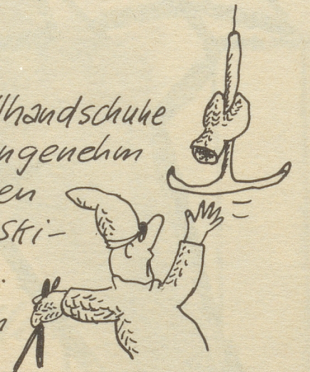 llhandschuhe
ngenehm
en
ski-